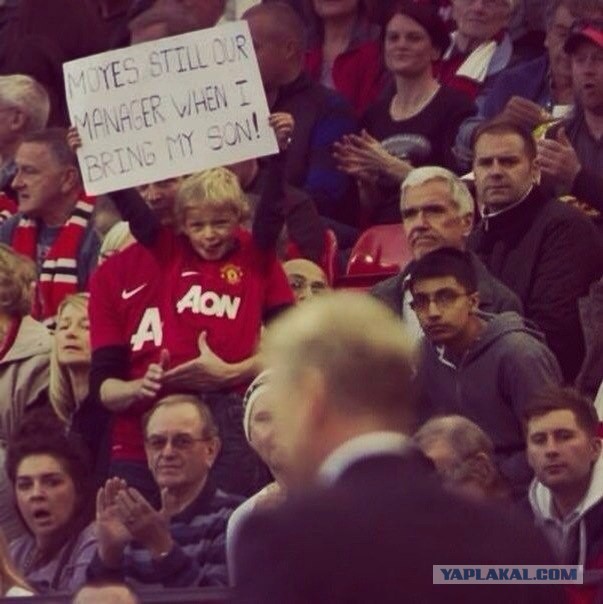 MOYES STILL OUR
MANAGER WHEN I
BRING MY SON!
AON
A
YAPLAKAL.COM